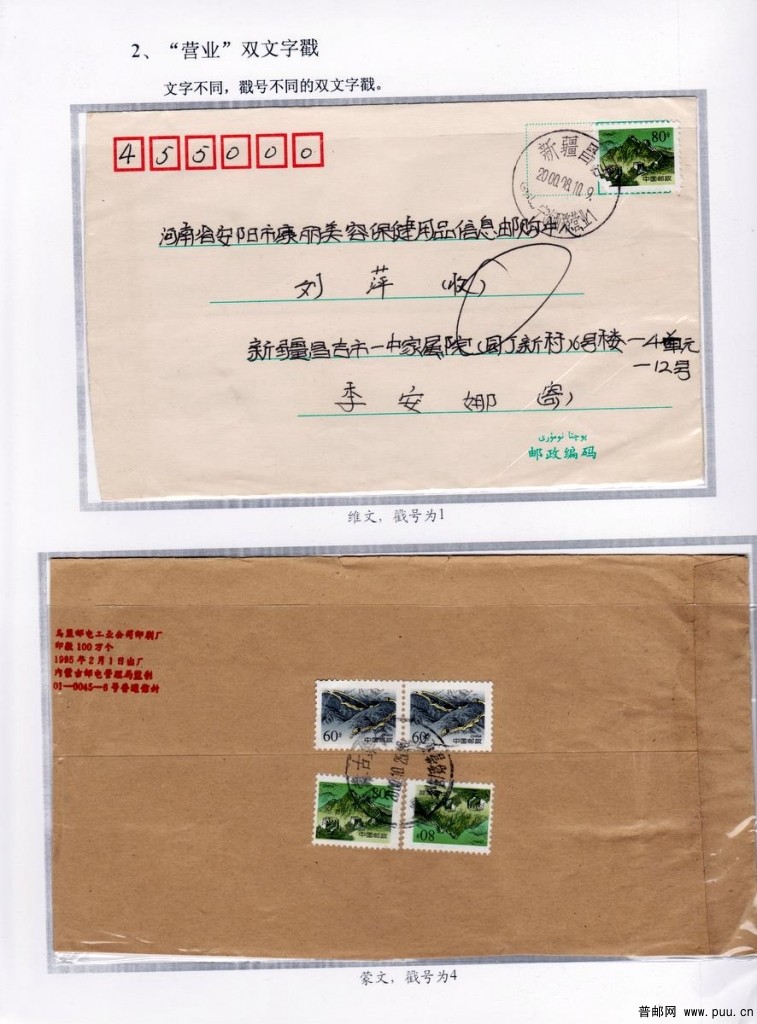 2、“营业”双文字戳
文字不同，戳号不同的双文字戳。
455000
80分
中国邮政
新疆昌吉
2000.10.9.
营业1
河南省安阳市康丽美容保健用品信息邮购中心
刘萍（收）
新疆昌吉市一中家属院（园丁新村）6号楼一4单元
一12号
李安娜（寄）
يوچتا نومۇرى
邮政编码
维文，戳号为1
乌盟邮电工业公司印刷厂
印数100万个
1995年2月1日出厂
内蒙古邮电管理局监制
01—0045—6号普通信封
60分
中国邮政
60分
中国邮政
80
中国邮政
80分
蒙文，戳号为4
普邮网 www.puu.cn